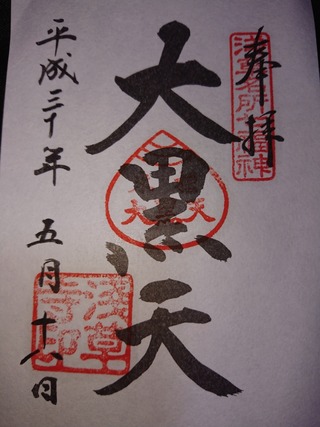 奉拝
浅草名所七福神
大黒天
大黒天
平成三十年 五月 十八日
浅草寺印